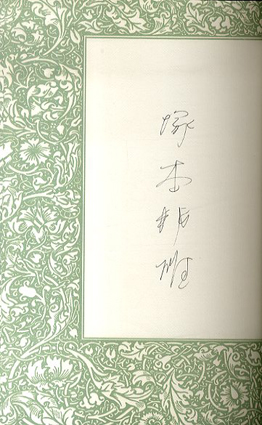 塚本邦雄